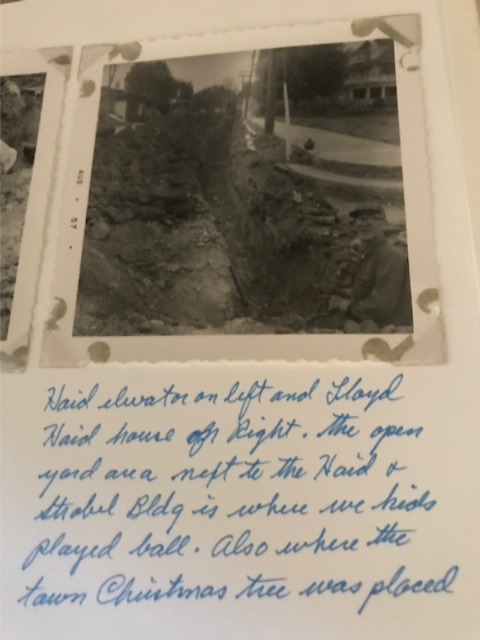 AUG • 57 •
Haid elvator on left and Lloyd
Haid house on Right. The open
yard area next to the Haid &
Strobel Bldg is where we kids
played ball. Also where the
town Christmas tree was placed